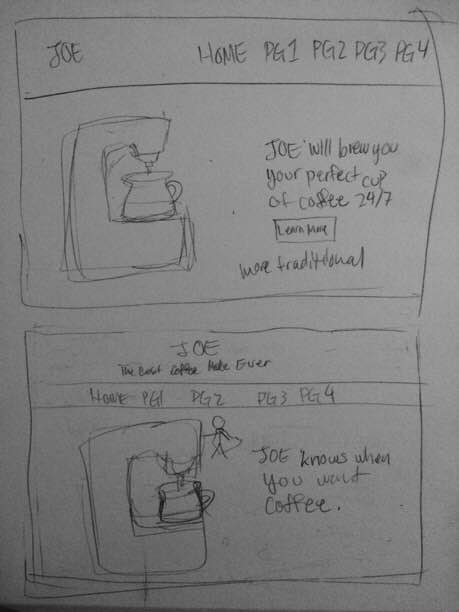 JOE
HOME PG1 PG2 PG3 PG4
JOE will brew you
your perfect cup
of coffee 24/7
Learn More
more traditional
JOE
The Best Coffee Make Ever
HOME PG1 PG2 PG3 PG4
JOE knows when
you want
coffee.